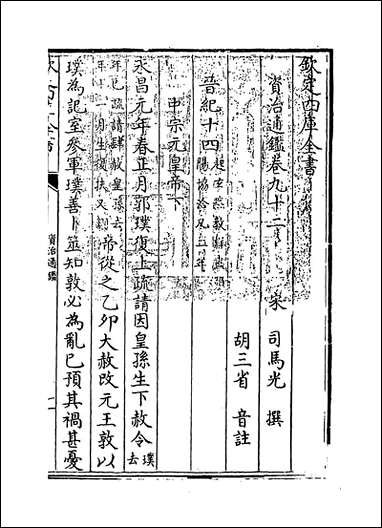 欽定四庫全書
資治通鑑卷九十二 宋 司馬光 撰
胡三省 音註
晉紀十四 起玄黓敦牂盡昭陽協洽凡二年
中宗元皇帝下
永昌元年春正月郭璞復上疏請因皇孫生下赦令璞去
年已疏請肆赦皇孫去年十一月生復扶又翻帝從之乙卯大赦改元王敦以
璞為記室參軍璞善卜筮知敦必為亂已預其禍甚憂
資治通鑑